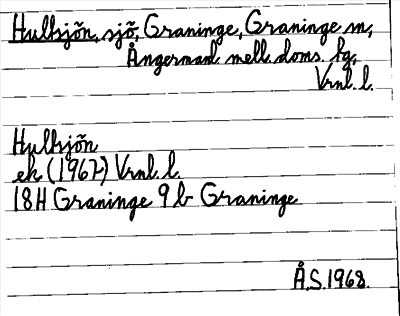 Hulksjön, sjö, Graninge, Graninge sn,
Ångermanl. mell. doms. fg.,
Vrnl. l.
Hulksjön
ek (1967) Vrnl. l.
18H Graninge 9 b Graninge
Å.S. 1968.